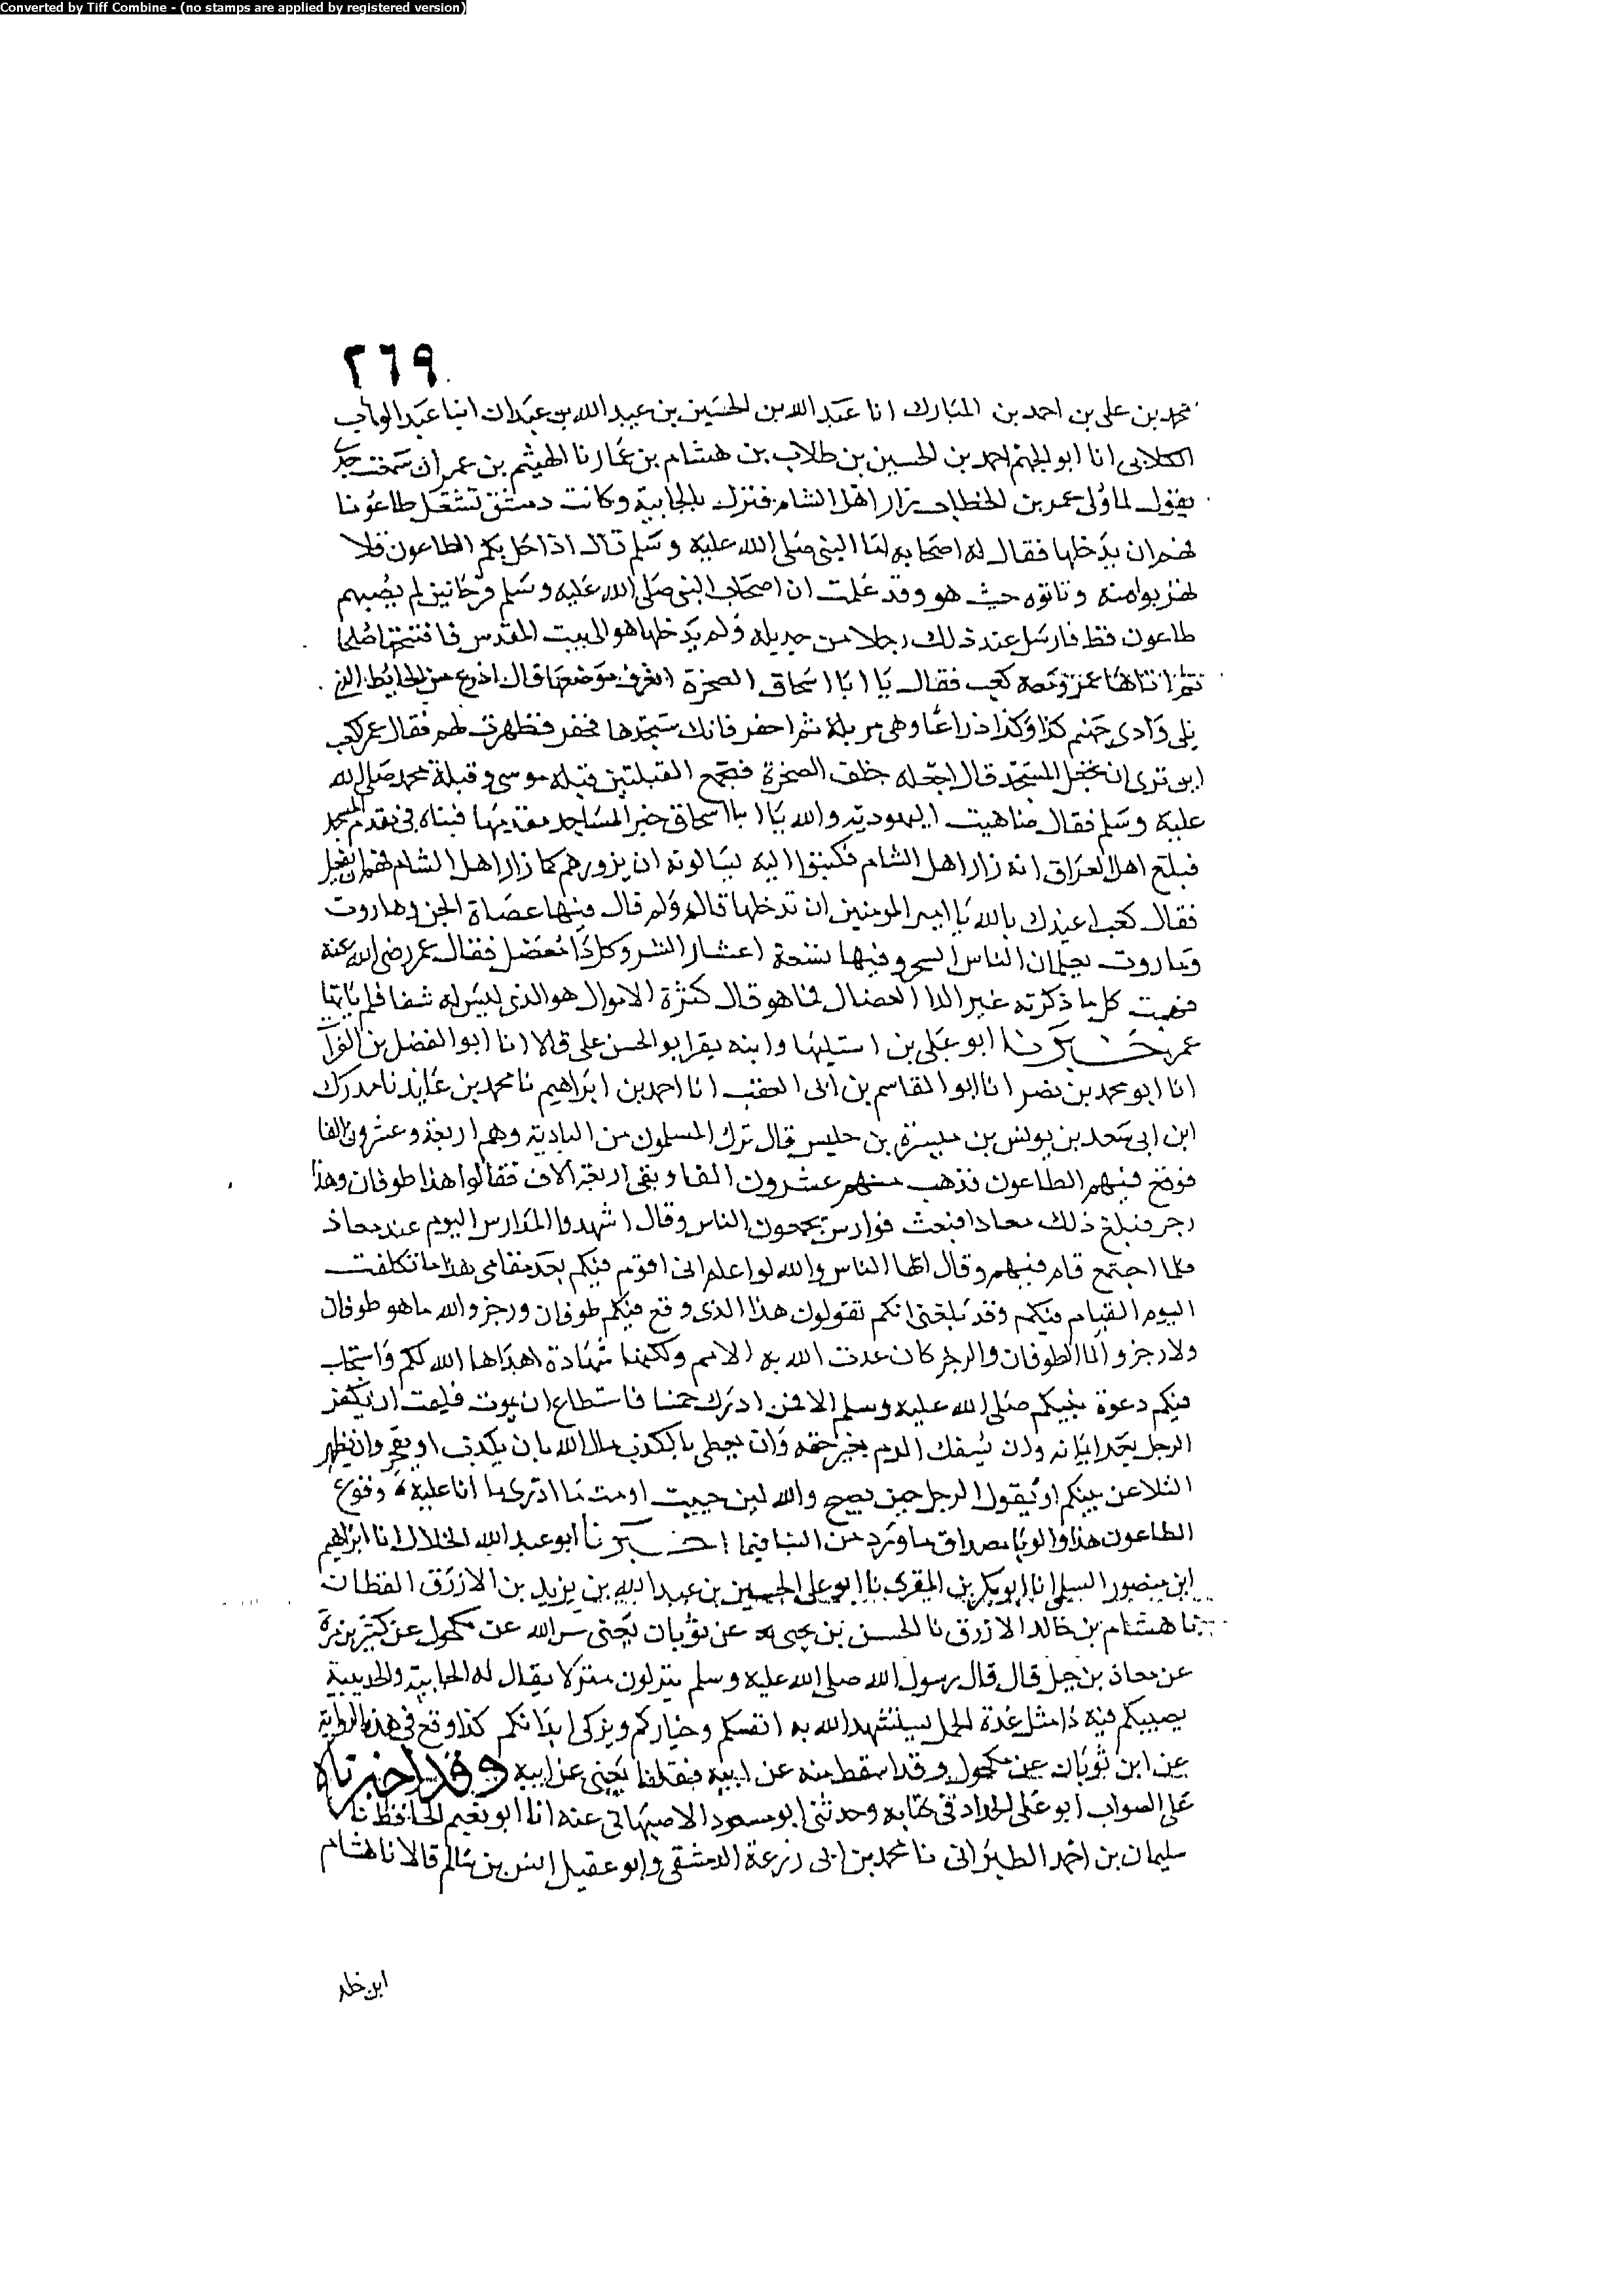 Converted by Tiff Combine - (no stamps are applied by registered version)
٢٦٩
محمد بن على بن احمد بن المبارك انا عبد الله بن الحسين بن عبيد الله بن عبدان انبا عبد الوهاب
الكلابى انا ابو الجهم احمد بن الحسين بن طلاب بن هشام بن عمار نا الهيثم بن عمران سمعت جدى
يقول لما ولى عمر بن الخطاب زار اهل الشام فنزل بالجابية وكانت دمشق تشتعل طاعونا
فهم ان يدخلها فقال له اصحابه اما النبى صلى الله عليه وسلم قال اذا حل بكم الطاعون فلا
تهربوا منه وتاتوه حيث هو وقد علمت ان اصحاب النبى صلى الله عليه وسلم قرحانين لم يصبهم
طاعون قط فارسل عند ذلك رجلا من جديله ولم يدخلها هو الى بيت المقدس فافتتحها صلحا
ثم اتاها عمر ومعه كعب فقال يا ابا اسحاق الصخرة اتعرف موضعها قال اذرع من الحائط الذى
يلى وادى جهنم كذا وكذا ذراعا وهى مزبلة ثم احفر فانك ستجدها فحفر فظهرت لهم فقال عمر لكعب
اين ترى ان نجعل المسجد قال اجعله خلف الصخرة فتجمع القبلتين قبلة موسى وقبلة محمد صلى الله
عليه وسلم فقال ضاهيت اليهودية والله يا ابا اسحاق خير المساجد مقدمها فبناه فى مقدم المسجد
فبلغ اهل العراق انه زار اهل الشام فكتبوا اليه يسالونه ان يزورهم كما زار اهل الشام فهم ان يفعل
فقال كعب اعيذك بالله يا امير المومنين ان تدخلها قال ولم قال فيها عصاة الجن وهاروت
وماروت يعلمان الناس السحر وفيها تسعة اعشار الشر وكل داء معضل فقال عمر رضى الله عنه
فهمت كل ما ذكرته غير الدا العضال فما هو قال كثرة الاموال هو الذى ليس له شفا فلم ياتها
عمر اخبرنا ابو على بن اسليها وابنه يقرا بو الحسن على قالا انا ابو الفضل بن الفرات
انا ابو محمد بن نصر انا ابو القاسم بن ابى العقب انا احمد بن ابراهيم نا محمد بن عايذ نا مدرك
ابن ابى سعد بن يونس بن ميسرة بن حلبس قال نزل المسلمون من البادية وهم اربعة وعشرون الفا
فوقع فيهم الطاعون فذهب منهم عشرون الفا وبقى اربعة الاف فقالوا هذا طوفان وهذا
رجز فبلغ ذلك معاذا فبعث فوارس يجمعون الناس وقال اشهدوا المدارس اليوم عند معاذ
فلما اجتمع قام فيهم وقال ايها الناس والله لو اعلم انى اقوم فيكم بعد مقامى هذا ما تكلفت
اليوم القيام فيكم وقد بلغنى انكم تقولون هذا الذى وقع فيكم طوفان ورجز والله ما هو طوفان
ولا رجز وانما الطوفان والرجز كان عذب الله به الامم ولكنها شهادة اهداها الله لكم واستجاب
فيكم دعوة نبيكم صلى الله عليه وسلم الا فمن ادرك خمسا فاستطاع ان يموت فليمت ان يكفر
الرجل بعد ايمانه وان يسفك الدم بغير حقه وان يعطى بالكذب مال الله بان يكذب او يفجر وان يظهر
التلاعن بينكم او يقول الرجل حين يصبح والله لين حييت او مت ما ادرى ما انا عليه وقوع
الطاعون هذا والوبا مصداق ما ورد من النبا فيما اخبرنا ابو عبد الله الخلال انا ابراهيم
ابن منصور السلمى انا ابو بكر بن المقرى نا ابو على الحسين بن عبد الله بن يزيد بن الازرق القطان
نا هشام بن خالد الازرق نا الحسن بن يحيى عن ثوبان يعنى عن مكحول عن كثير بن مرة
عن معاذ بن جبل قال قال رسول الله صلى الله عليه وسلم ينزلون منزلا يقال له الجابية والجديبية
يصيبكم فيه دا مثل غدة الجمل يستشهد الله به انفسكم وخياركم ويزكى ابدانكم كذا وقع فى هذه الرواية
عن ابن ثوبان عن مكحول وقد اسقط منه عن ابيه فقلنا يعنى عن ابيه وقد اخبرناه
على الصواب ابو على الحداد فى كتابه وحدثنى ابو مسعود الاصبهانى عنه انا ابو نعيم الحافظ نا
سليمان بن احمد الطبرانى نا محمد بن ابى زرعة الدمشقى وابو عقيل انس بن سالم قالا نا هشام
ابن خلد